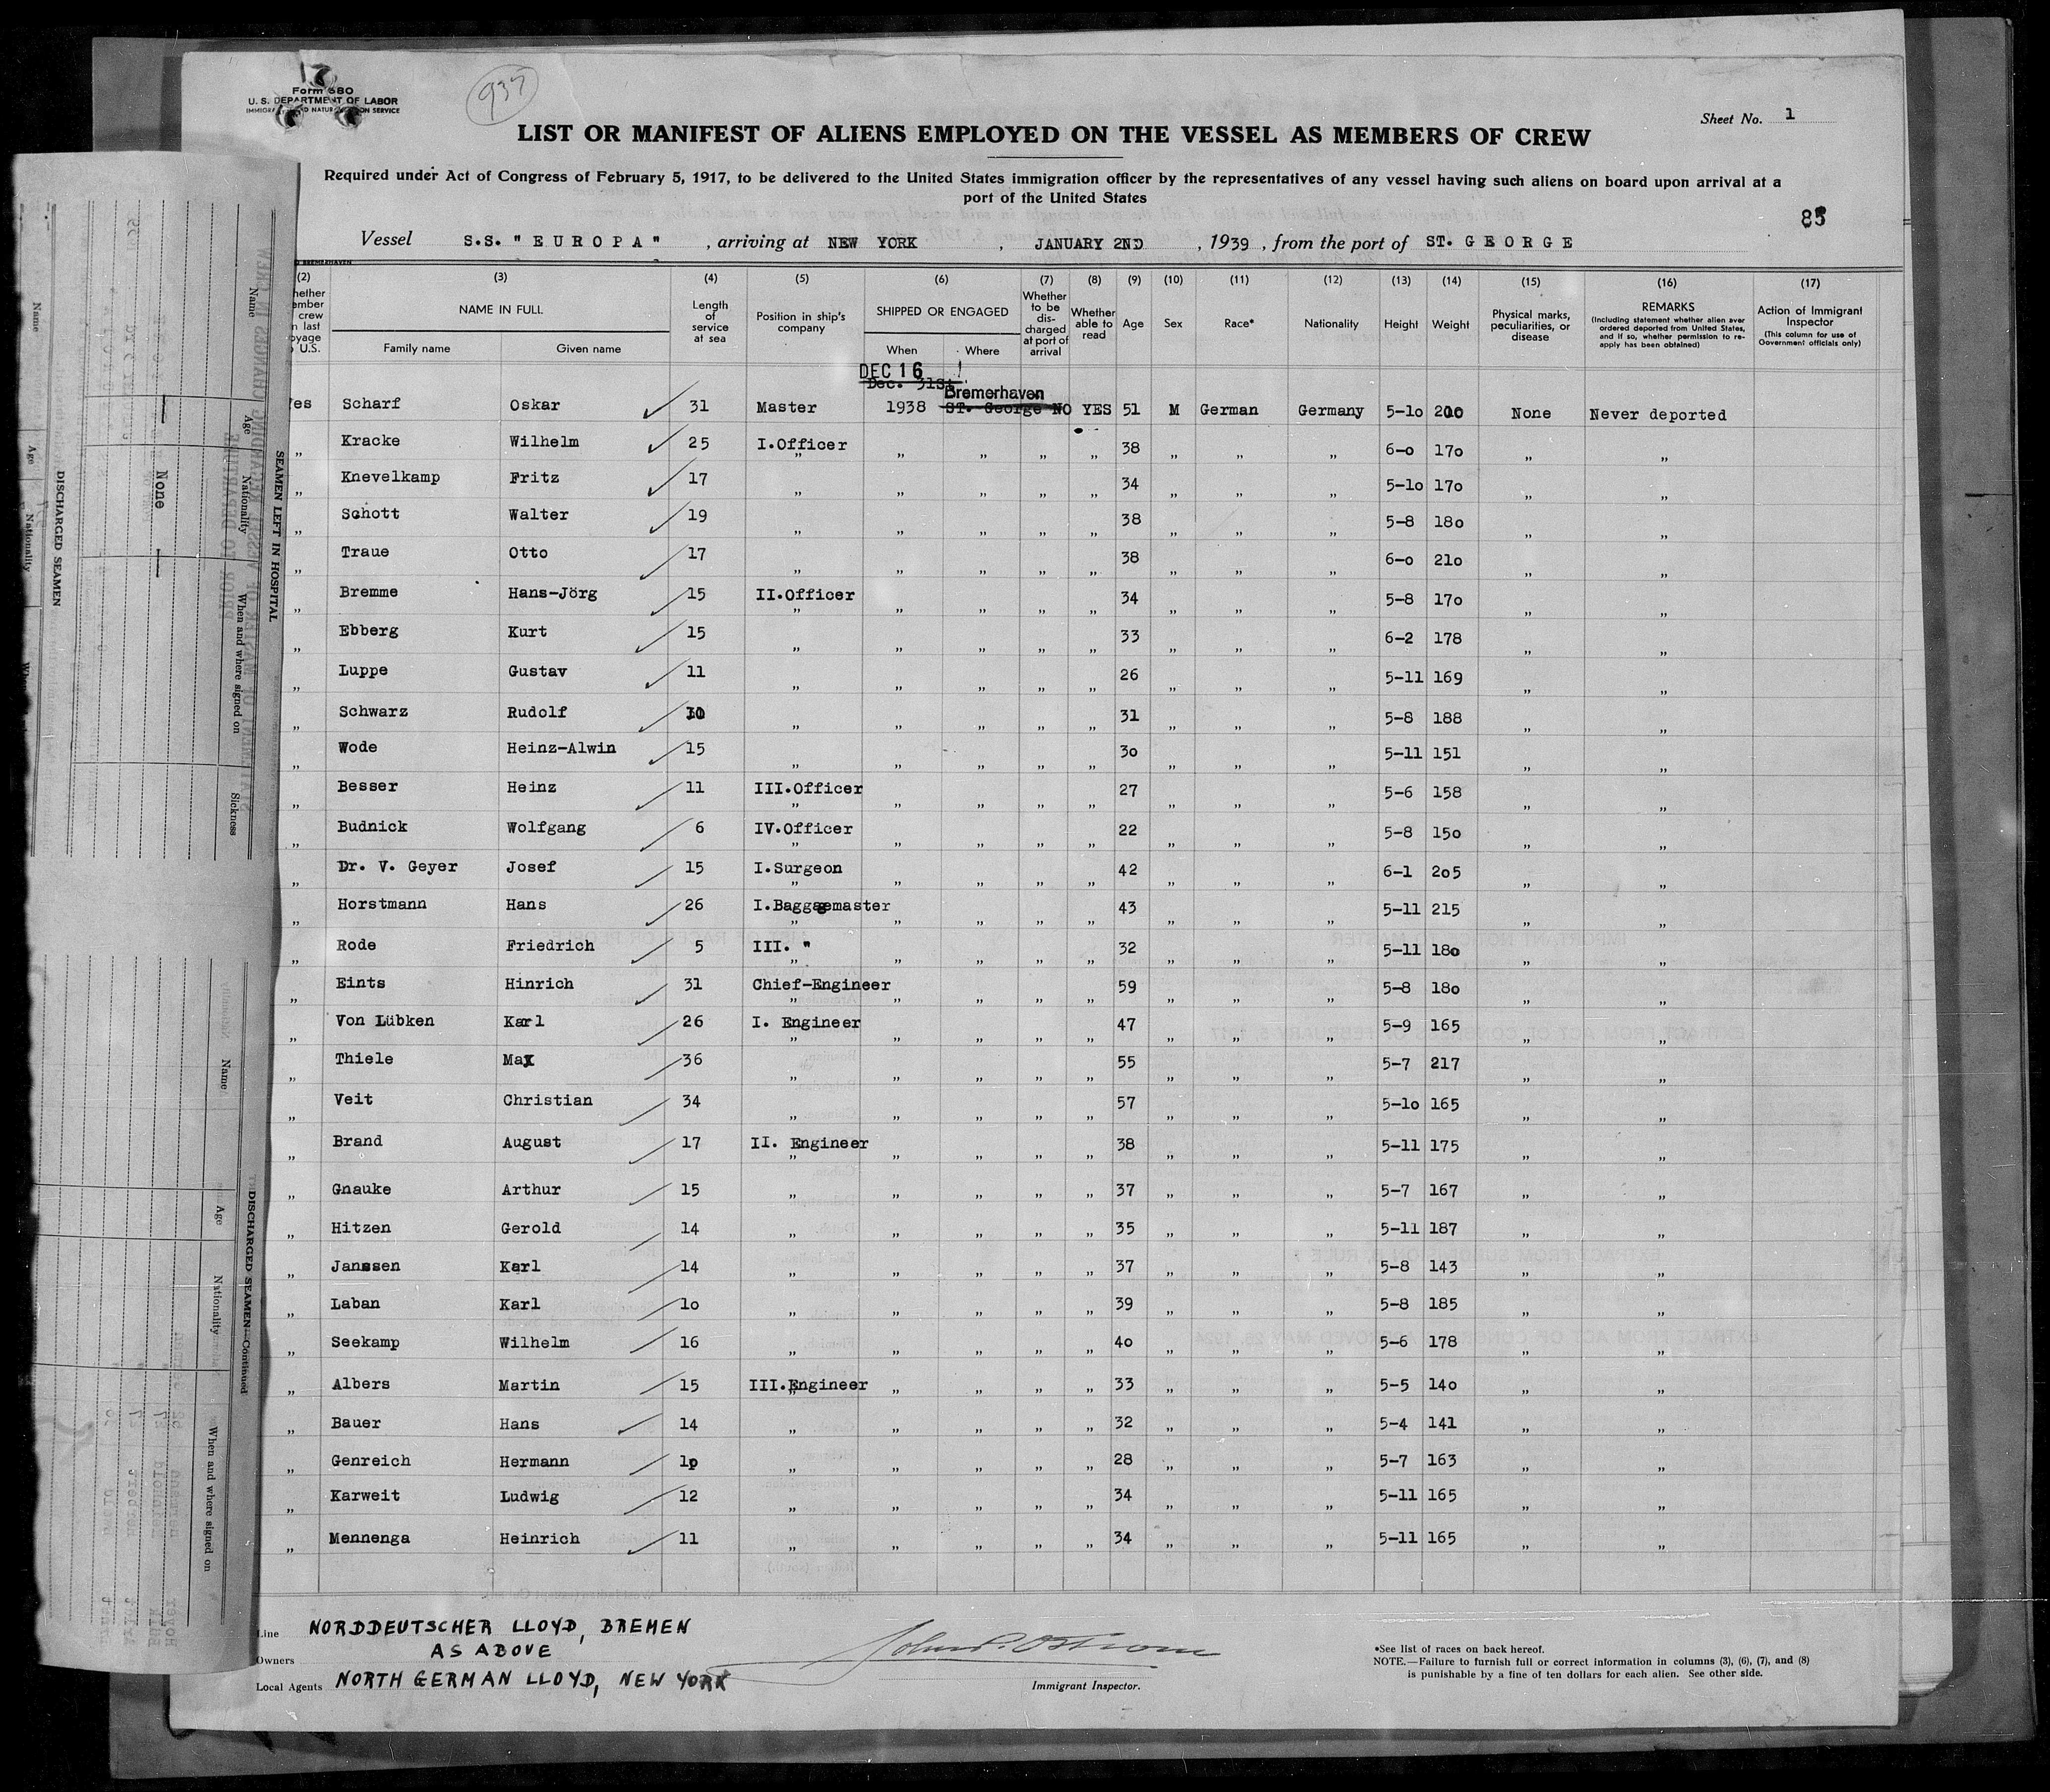 Form 680
U. S. DEPARTMENT OF LABOR
937
Sheet No. 1
LIST OR MANIFEST OF ALIENS EMPLOYED ON THE VESSEL AS MEMBERS OF CREW
Required under Act of Congress of February 5, 1917, to be delivered to the United States immigration officer by the representatives of any vessel having such aliens on board upon arrival at a
port of the United States
Vessel S.S. "EUROPA", arriving at NEW YORK, JANUARY 2ND, 1939, from the port of ST. GEORGE
(2) (3) (4) (5) (6) (7) (8) (9) (10) (11) (12) (13) (14) (15) (16) (17)
NAME IN FULL Family name Given name
Length of service at sea
Position in ship's company
SHIPPED OR ENGAGED When Where
Whether to be discharged at port of arrival
Whether able to read
Age Sex Race* Nationality Height Weight
Physical marks, peculiarities, or disease
REMARKS (Including statement whether alien ever ordered deported from United States, and if so, whether permission to reapply has been obtained)
Action of Immigrant Inspector (This column for use of Government officials only)
DEC 16
Dec. 31St Bremerhaven
Scharf Oskar 31 Master 1938 ST. George NO YES 51 M German Germany 5-10 None Never deported
„ Kracke Wilhelm 25 I.Officer „ „ „ „ „ 38 „ „ „ 6-0 170 „ „
„ Knevelkamp Fritz 17 „ „ „ „ „ 34 „ „ „ 5-10 170 „ „
„ Schott Walter 19 „ „ „ „ „ 38 „ „ „ 5-8 180 „ „
„ Traue Otto 17 „ „ „ „ „ 38 „ „ „ 6-0 210 „ „
„ Bremme Hans-Jörg 15 II.Officer „ „ „ „ „ 34 „ „ „ 5-8 170 „ „
„ Ebberg Kurt 15 „ „ „ „ „ 33 „ „ „ 6-2 178 „ „
„ Luppe Gustav 11 „ „ „ „ „ 26 „ „ „ 5-11 169 „ „
„ Schwarz Rudolf „ „ „ „ „ 31 „ „ „ 5-8 188 „ „
„ Wode Heinz-Alwin 15 „ „ „ „ „ 30 „ „ „ 5-11 151 „ „
„ Besser Heinz 11 III.Officer „ „ „ „ „ 27 „ „ „ 5-6 158 „ „
„ Budnick Wolfgang 6 IV.Officer „ „ „ „ „ 22 „ „ „ 5-8 150 „ „
„ Dr. V. Geyer Josef 15 I.Surgeon „ „ „ „ „ 42 „ „ „ 6-1 205 „ „
„ Horstmann Hans 26 I.Baggagemaster „ „ „ „ „ 43 „ „ „ 5-11 215 „ „
„ Rode Friedrich 5 III. " „ „ „ „ „ 32 „ „ „ 5-11 180 „ „
„ Eints Hinrich 31 Chief-Engineer „ „ „ „ „ 59 „ „ „ 5-8 180 „ „
„ Von Lübken Karl 26 I. Engineer „ „ „ „ „ 47 „ „ „ 5-9 165 „ „
„ Thiele Max 36 „ „ „ „ „ 55 „ „ „ 5-7 217 „ „
„ Veit Christian 34 „ „ „ „ „ 57 „ „ „ 5-10 165 „ „
„ Brand August 17 II. Engineer „ „ „ „ „ 38 „ „ „ 5-11 175 „ „
„ Gnauke Arthur 15 „ „ „ „ „ 37 „ „ „ 5-7 167 „ „
„ Hitzen Gerold 14 „ „ „ „ „ 35 „ „ „ 5-11 187 „ „
„ Janssen Karl 14 „ „ „ „ „ 37 „ „ „ 5-8 143 „ „
„ Laban Karl 10 „ „ „ „ „ 39 „ „ „ 5-8 185 „ „
„ Seekamp Wilhelm 16 „ „ „ „ „ 40 „ „ „ 5-6 178 „ „
„ Albers Martin 15 III.Engineer „ „ „ „ „ 33 „ „ „ 5-5 140 „ „
„ Bauer Hans 14 „ „ „ „ „ 32 „ „ „ 5-4 141 „ „
„ Genreich Hermann 10 „ „ „ „ „ 28 „ „ „ 5-7 163 „ „
„ Karweit Ludwig 12 „ „ „ „ „ 34 „ „ „ 5-11 165 „ „
„ Mennenga Heinrich 11 „ „ „ „ „ 34 „ „ „ 5-11 165 „ „
Line NORDDEUTSCHER LLOYD, BREMEN
Owners AS ABOVE
Local Agents NORTH GERMAN LLOYD, NEW YORK
Immigrant Inspector.
*See list of races on back hereof.
NOTE.—Failure to furnish full or correct information in columns (3), (6), (7), and (8)
is punishable by a fine of ten dollars for each alien. See other side.
SEAMEN LEFT IN HOSPITAL
Name Age Nationality When and where signed on Sickness
None
DISCHARGED SEAMEN
Name Age Nationality
DISCHARGED SEAMEN—Continued
Name Age Nationality When and where signed on